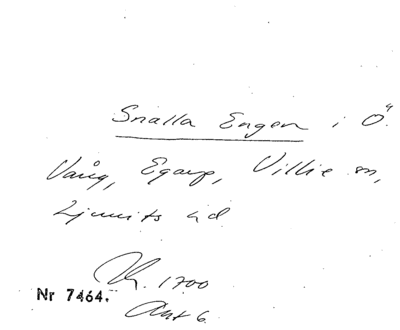 Snälla Engen i Ö
Vång, Egarp, Villie sn,
Ljunits hd
1700
Nr 7464.
Akt 6